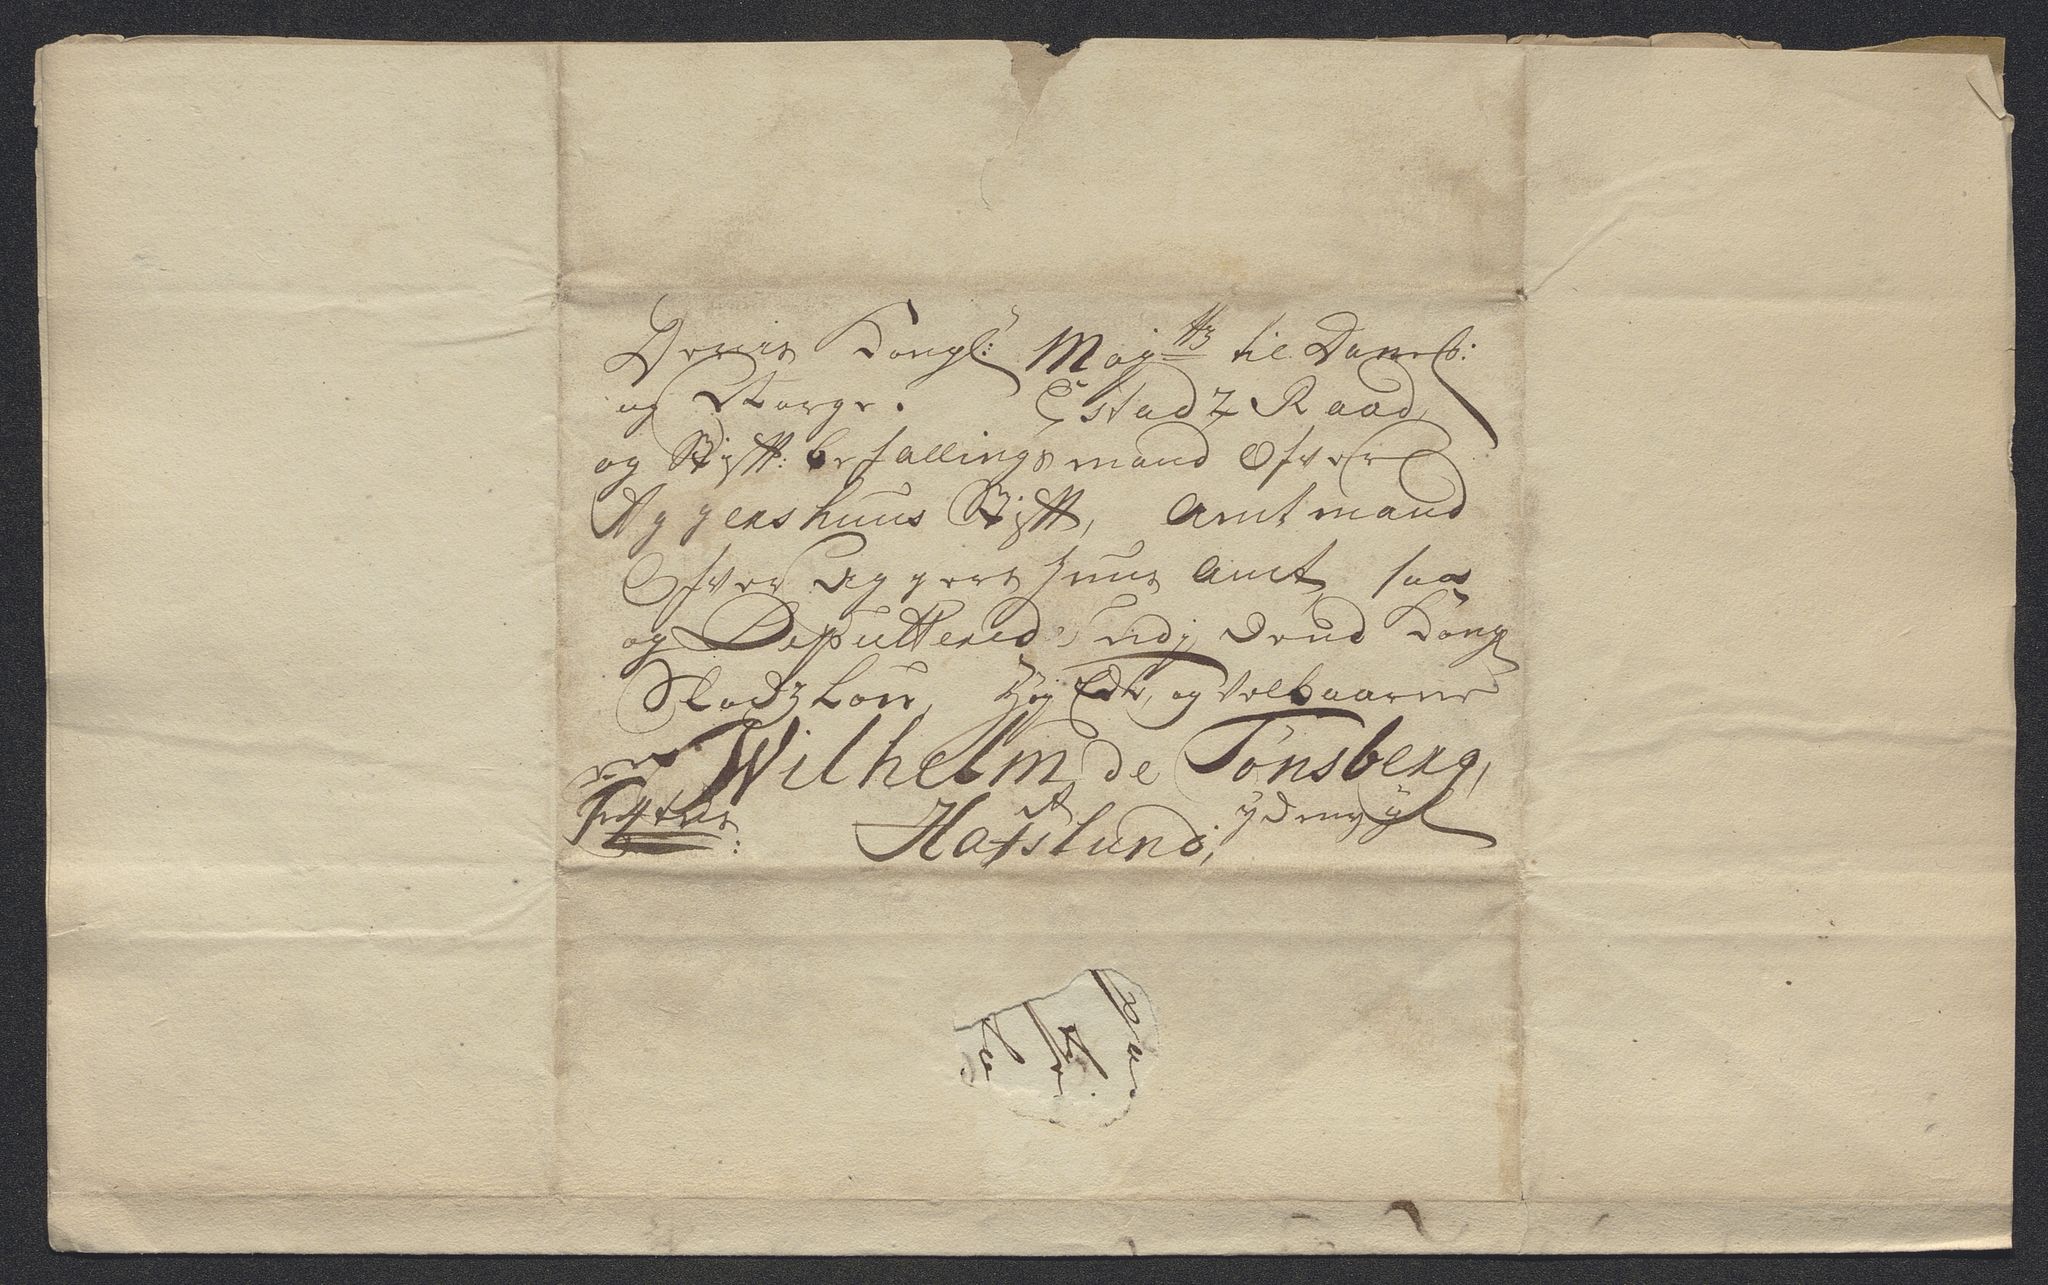 Deris Kongl: Maj:ttz til Danm:
og Norge. Estadz Raad,
og Stiftt: befallingsmand Ofver
Aggershuus Stiftt, Amtmand
Ofver Aggers huus Amt, saa
og Deputtered udj Dend Kongl
Slodzlov, Høj Edle, og Velbaarne
Wilhelm de Tønsberg,
Hafslund,